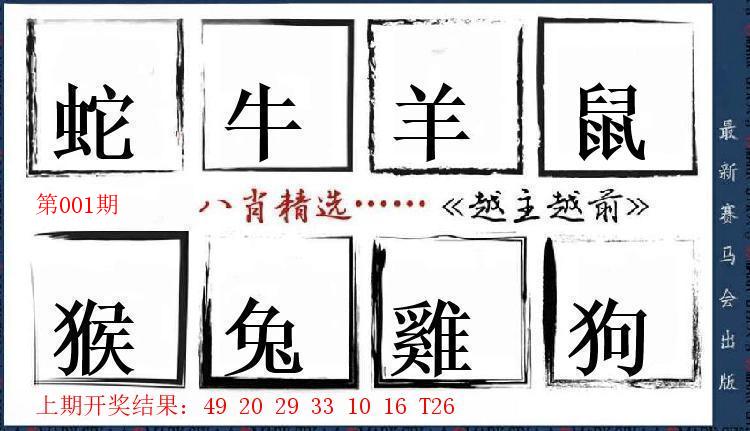 蛇 牛 羊 鼠
第001期
八肖精选……《越主越前》
猴 兔 雞 狗
上期开奖结果: 49 20 29 33 10 16 T26
最新赛马会出版